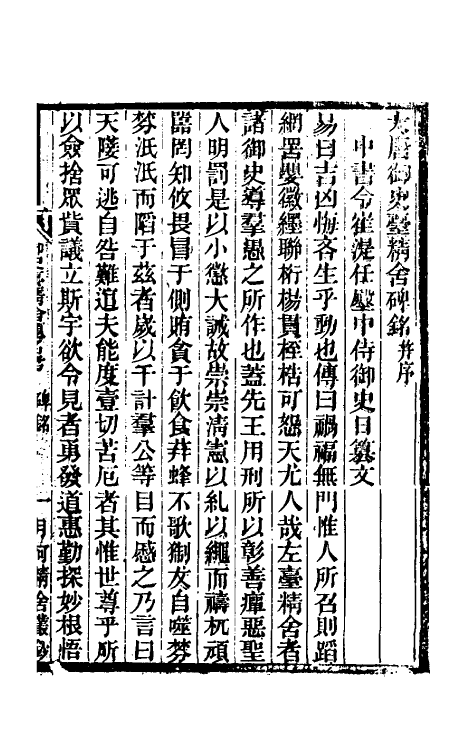 大唐御史臺精舍碑銘并序
中書令崔湜任殿中侍御史日纂文
易曰吉凶悔吝生乎動也傳曰禍福無門惟人所召則蹈
網罟嬰徽纆聯桁楊貫桎梏可怨天尤人哉左臺精舍者
諸御史導羣愚之所作也蓋先王用刑所以彰善癉惡聖
人明罰是以小懲大誡故崇崇清憲以糺以繩而禱杌頑
嚚罔知攸畏冒于側賄貪于飲食荓蜂不歌猘友自噬棼
棼泯泯而陷于茲者歲以千計羣公等目而慼之乃言曰
天陵可逃自咎難逭夫能度壹切苦厄者其惟世尊乎所
以僉捨衆貲議立斯宇欲令見者勇發道惠勤探妙根悟
碑銘
一
月河精舍叢鈔